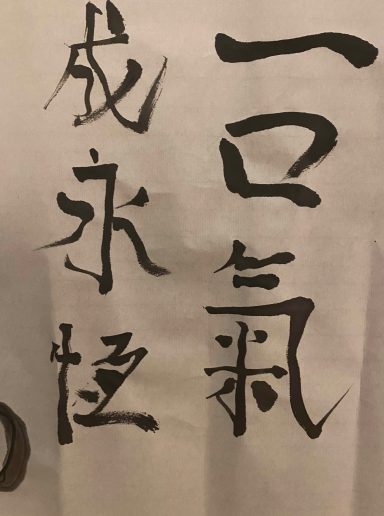 一口氣
成永恆